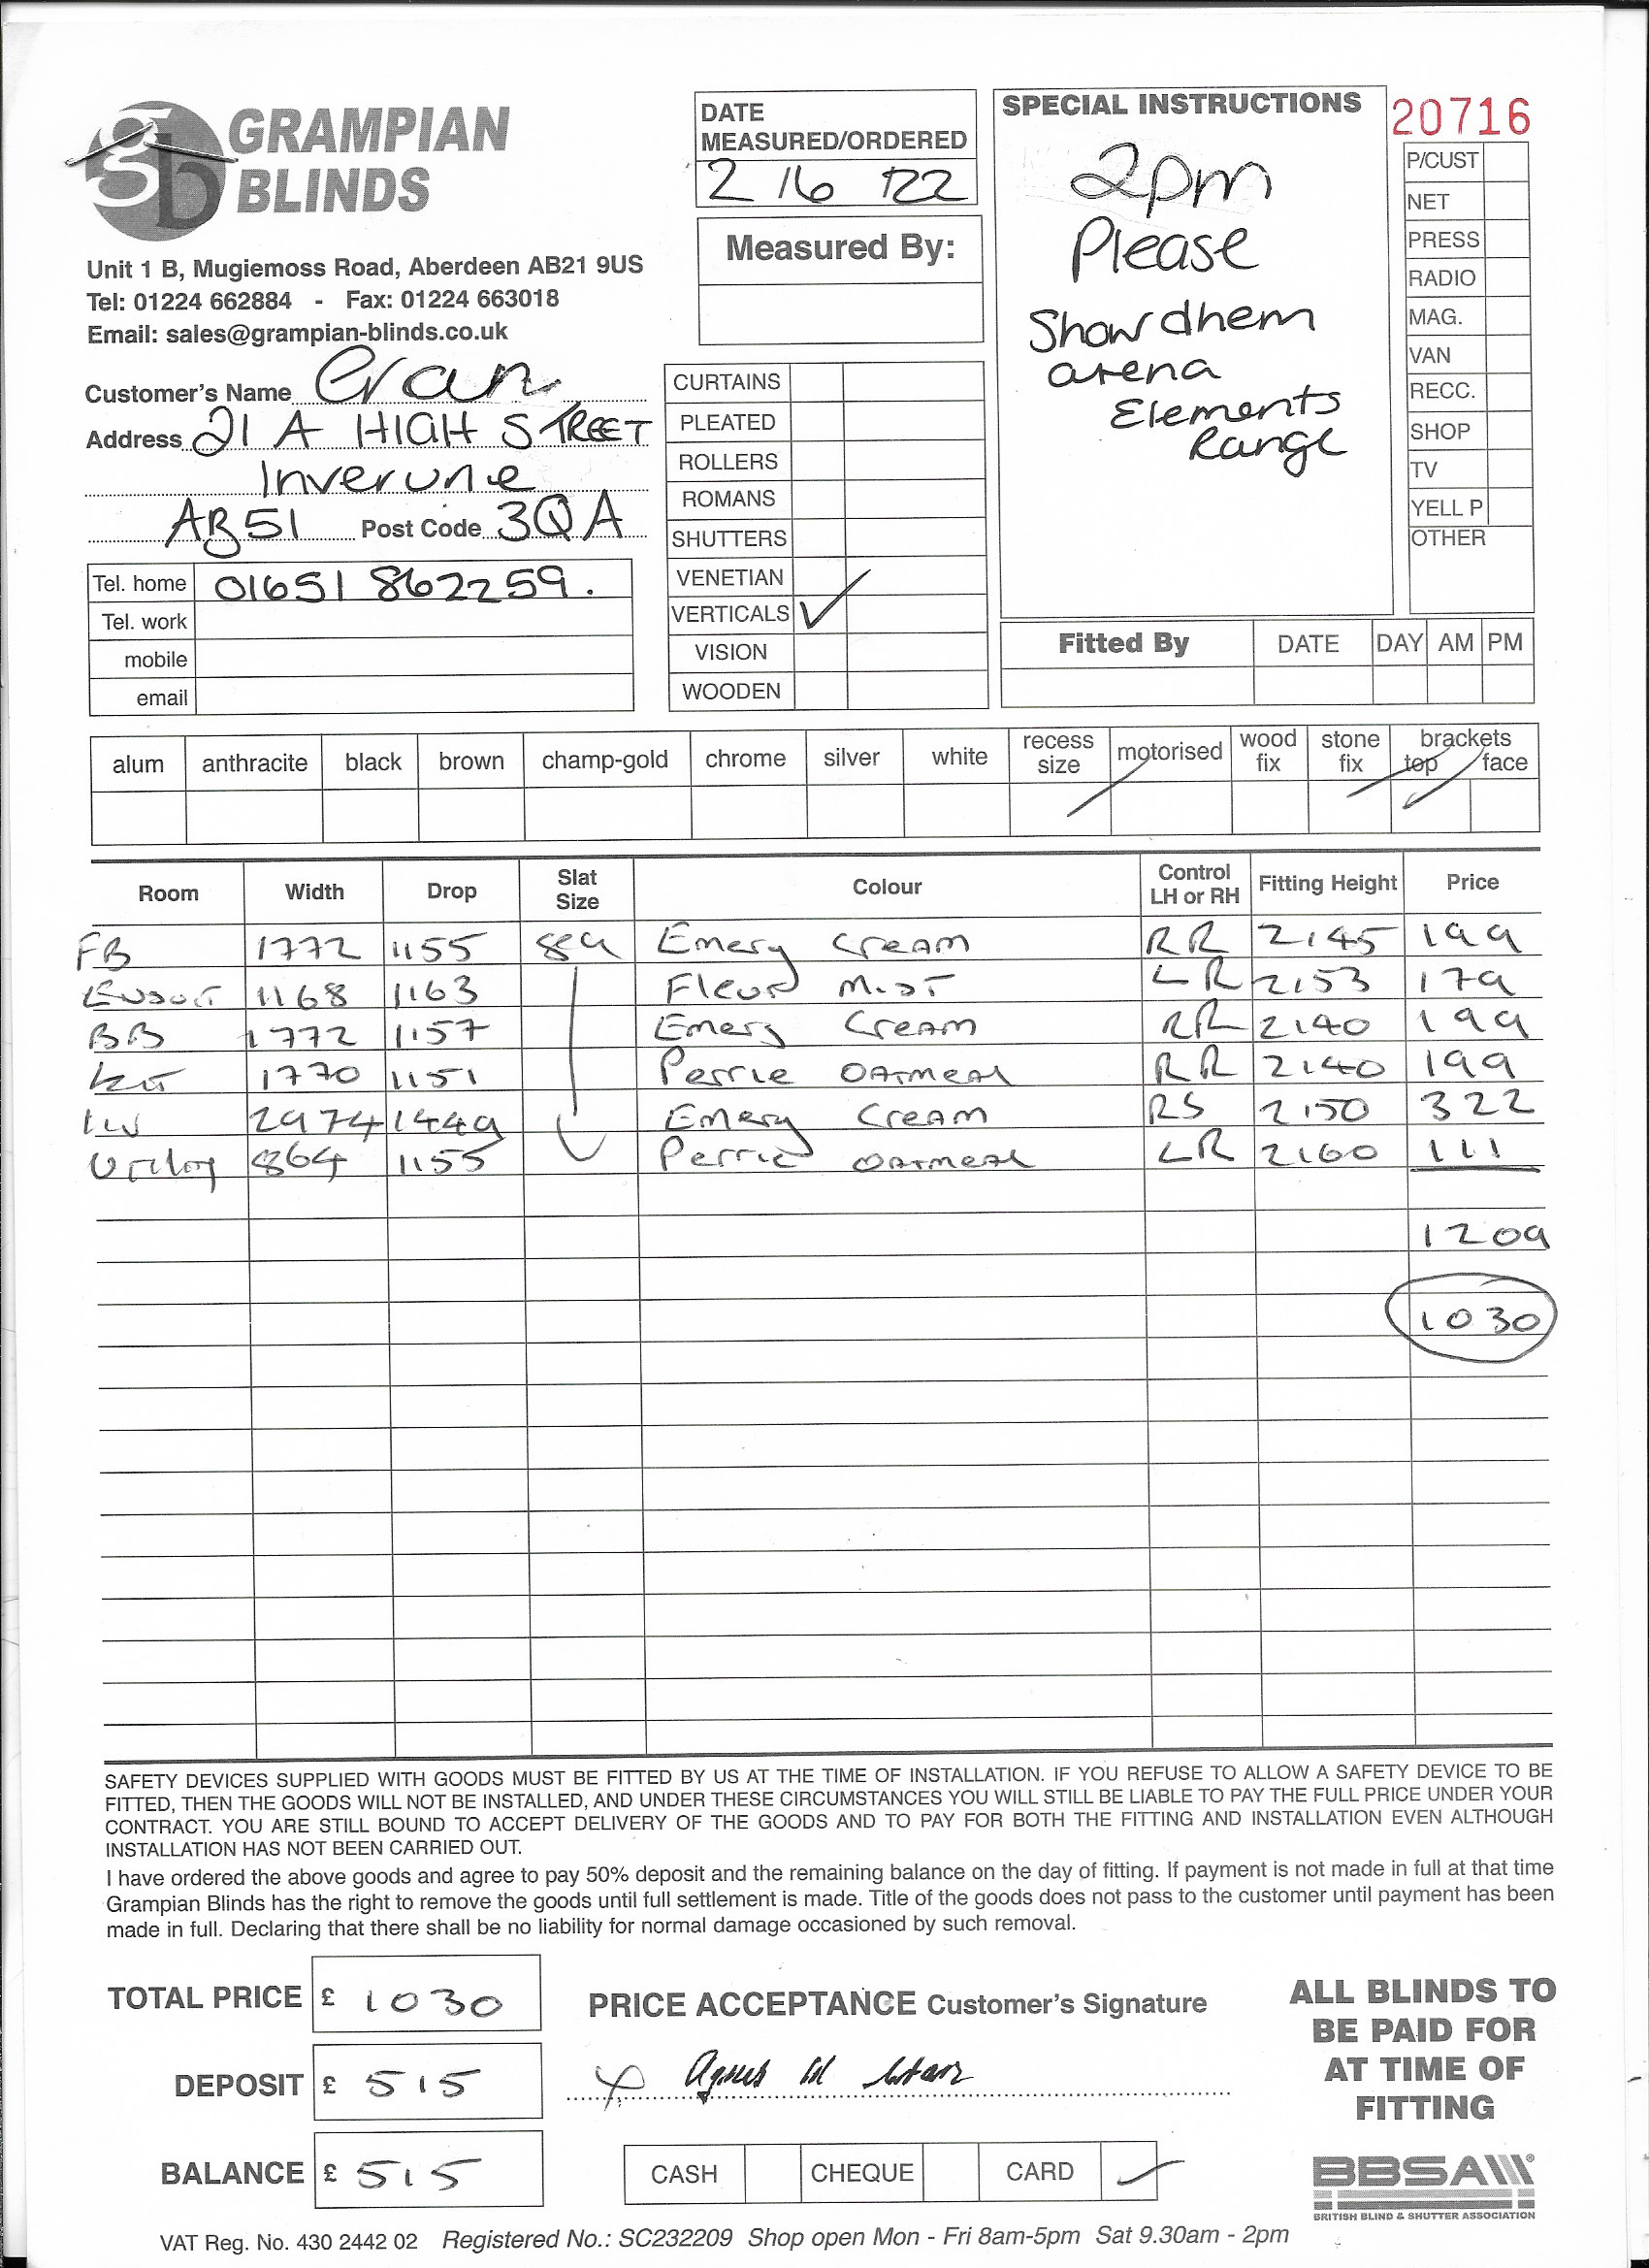 gb GRAMPIAN BLINDS
Unit 1 B, Mugiemoss Road, Aberdeen AB21 9US
Tel: 01224 662884 - Fax: 01224 663018
Email: sales@grampian-blinds.co.uk
Customer's Name
Address 21 A HIGH STREET
Inverurie
AB51 Post Code 3QA
Tel. home 01651 862259.
Tel. work
mobile
email
DATE
MEASURED/ORDERED
2/6/22
Measured By:
CURTAINS
PLEATED
ROLLERS
ROMANS
SHUTTERS
VENETIAN
VERTICALS ✓
VISION
WOODEN
SPECIAL INSTRUCTIONS
2pm
Please
Show them
arena
Elements
Range
20716
P/CUST
NET
PRESS
RADIO
MAG.
VAN
RECC.
SHOP
TV
YELL P
OTHER
Fitted By DATE DAY AM PM
alum anthracite black brown champ-gold chrome silver white recess size motorised wood fix stone fix brackets top face
Room Width Drop Slat Size Colour Control LH or RH Fitting Height Price
FB 1772 1155 89 Emery Cream RR 2145 199
1168 1163 Fleur Mist LR 2153 179
BB 1772 1157 Emery Cream RR 2140 199
Kit 1770 1151 Perrie Oatmeal RR 2140 199
2974 1449 Emery Cream RS 2150 322
864 1155 Perrie Oatmeal LR 2160 111
1209
1030
SAFETY DEVICES SUPPLIED WITH GOODS MUST BE FITTED BY US AT THE TIME OF INSTALLATION. IF YOU REFUSE TO ALLOW A SAFETY DEVICE TO BE
FITTED, THEN THE GOODS WILL NOT BE INSTALLED, AND UNDER THESE CIRCUMSTANCES YOU WILL STILL BE LIABLE TO PAY THE FULL PRICE UNDER YOUR
CONTRACT. YOU ARE STILL BOUND TO ACCEPT DELIVERY OF THE GOODS AND TO PAY FOR BOTH THE FITTING AND INSTALLATION EVEN ALTHOUGH
INSTALLATION HAS NOT BEEN CARRIED OUT.
I have ordered the above goods and agree to pay 50% deposit and the remaining balance on the day of fitting. If payment is not made in full at that time
Grampian Blinds has the right to remove the goods until full settlement is made. Title of the goods does not pass to the customer until payment has been
made in full. Declaring that there shall be no liability for normal damage occasioned by such removal.
TOTAL PRICE £ 1030
DEPOSIT £ 515
BALANCE £ 515
PRICE ACCEPTANCE Customer's Signature
X
CASH CHEQUE CARD ✓
ALL BLINDS TO
BE PAID FOR
AT TIME OF
FITTING
BBSA
BRITISH BLIND & SHUTTER ASSOCIATION
VAT Reg. No. 430 2442 02 Registered No.: SC232209 Shop open Mon - Fri 8am-5pm Sat 9.30am - 2pm